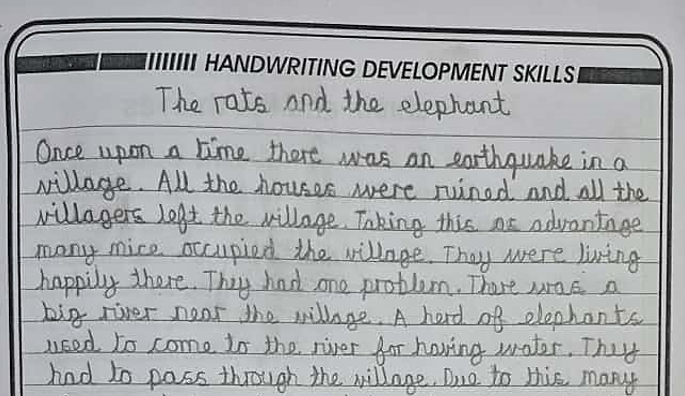 HANDWRITING DEVELOPMENT SKILLS
The rats and the elephant
Once upon a time there was an earthquake in a
village. All the houses were ruined and all the
villagers left the village. Taking this as advantage
many mice occupied the village. They were living
happily there. They had one problem. There was a
big river near the village. A herd of elephants
used to come to the river for having water. They
had to pass through the village. Due to this many